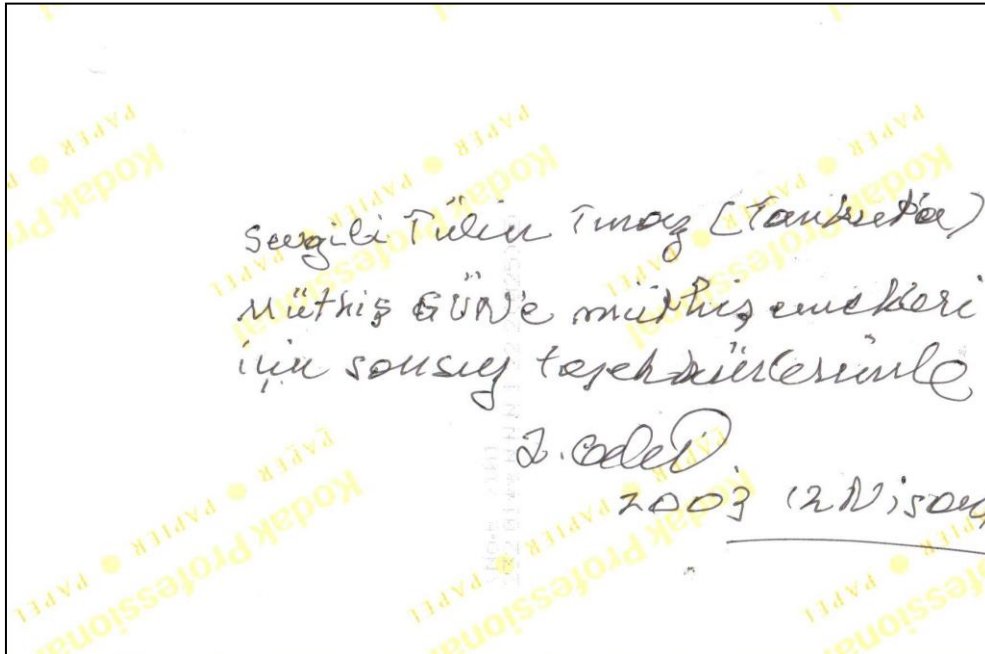 Sevgili Tülin Tınaz (Tankut'a)
Müthiş GÜN'e müthiş emekleri
için sonsuz teşekkürlerimle
2003 12 Nisan
Kodak Professional
PAPER PAPIER PAPEL